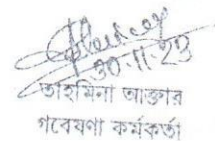 30.11.23
তাহমিনা আক্তার
গবেষণা কর্মকর্তা